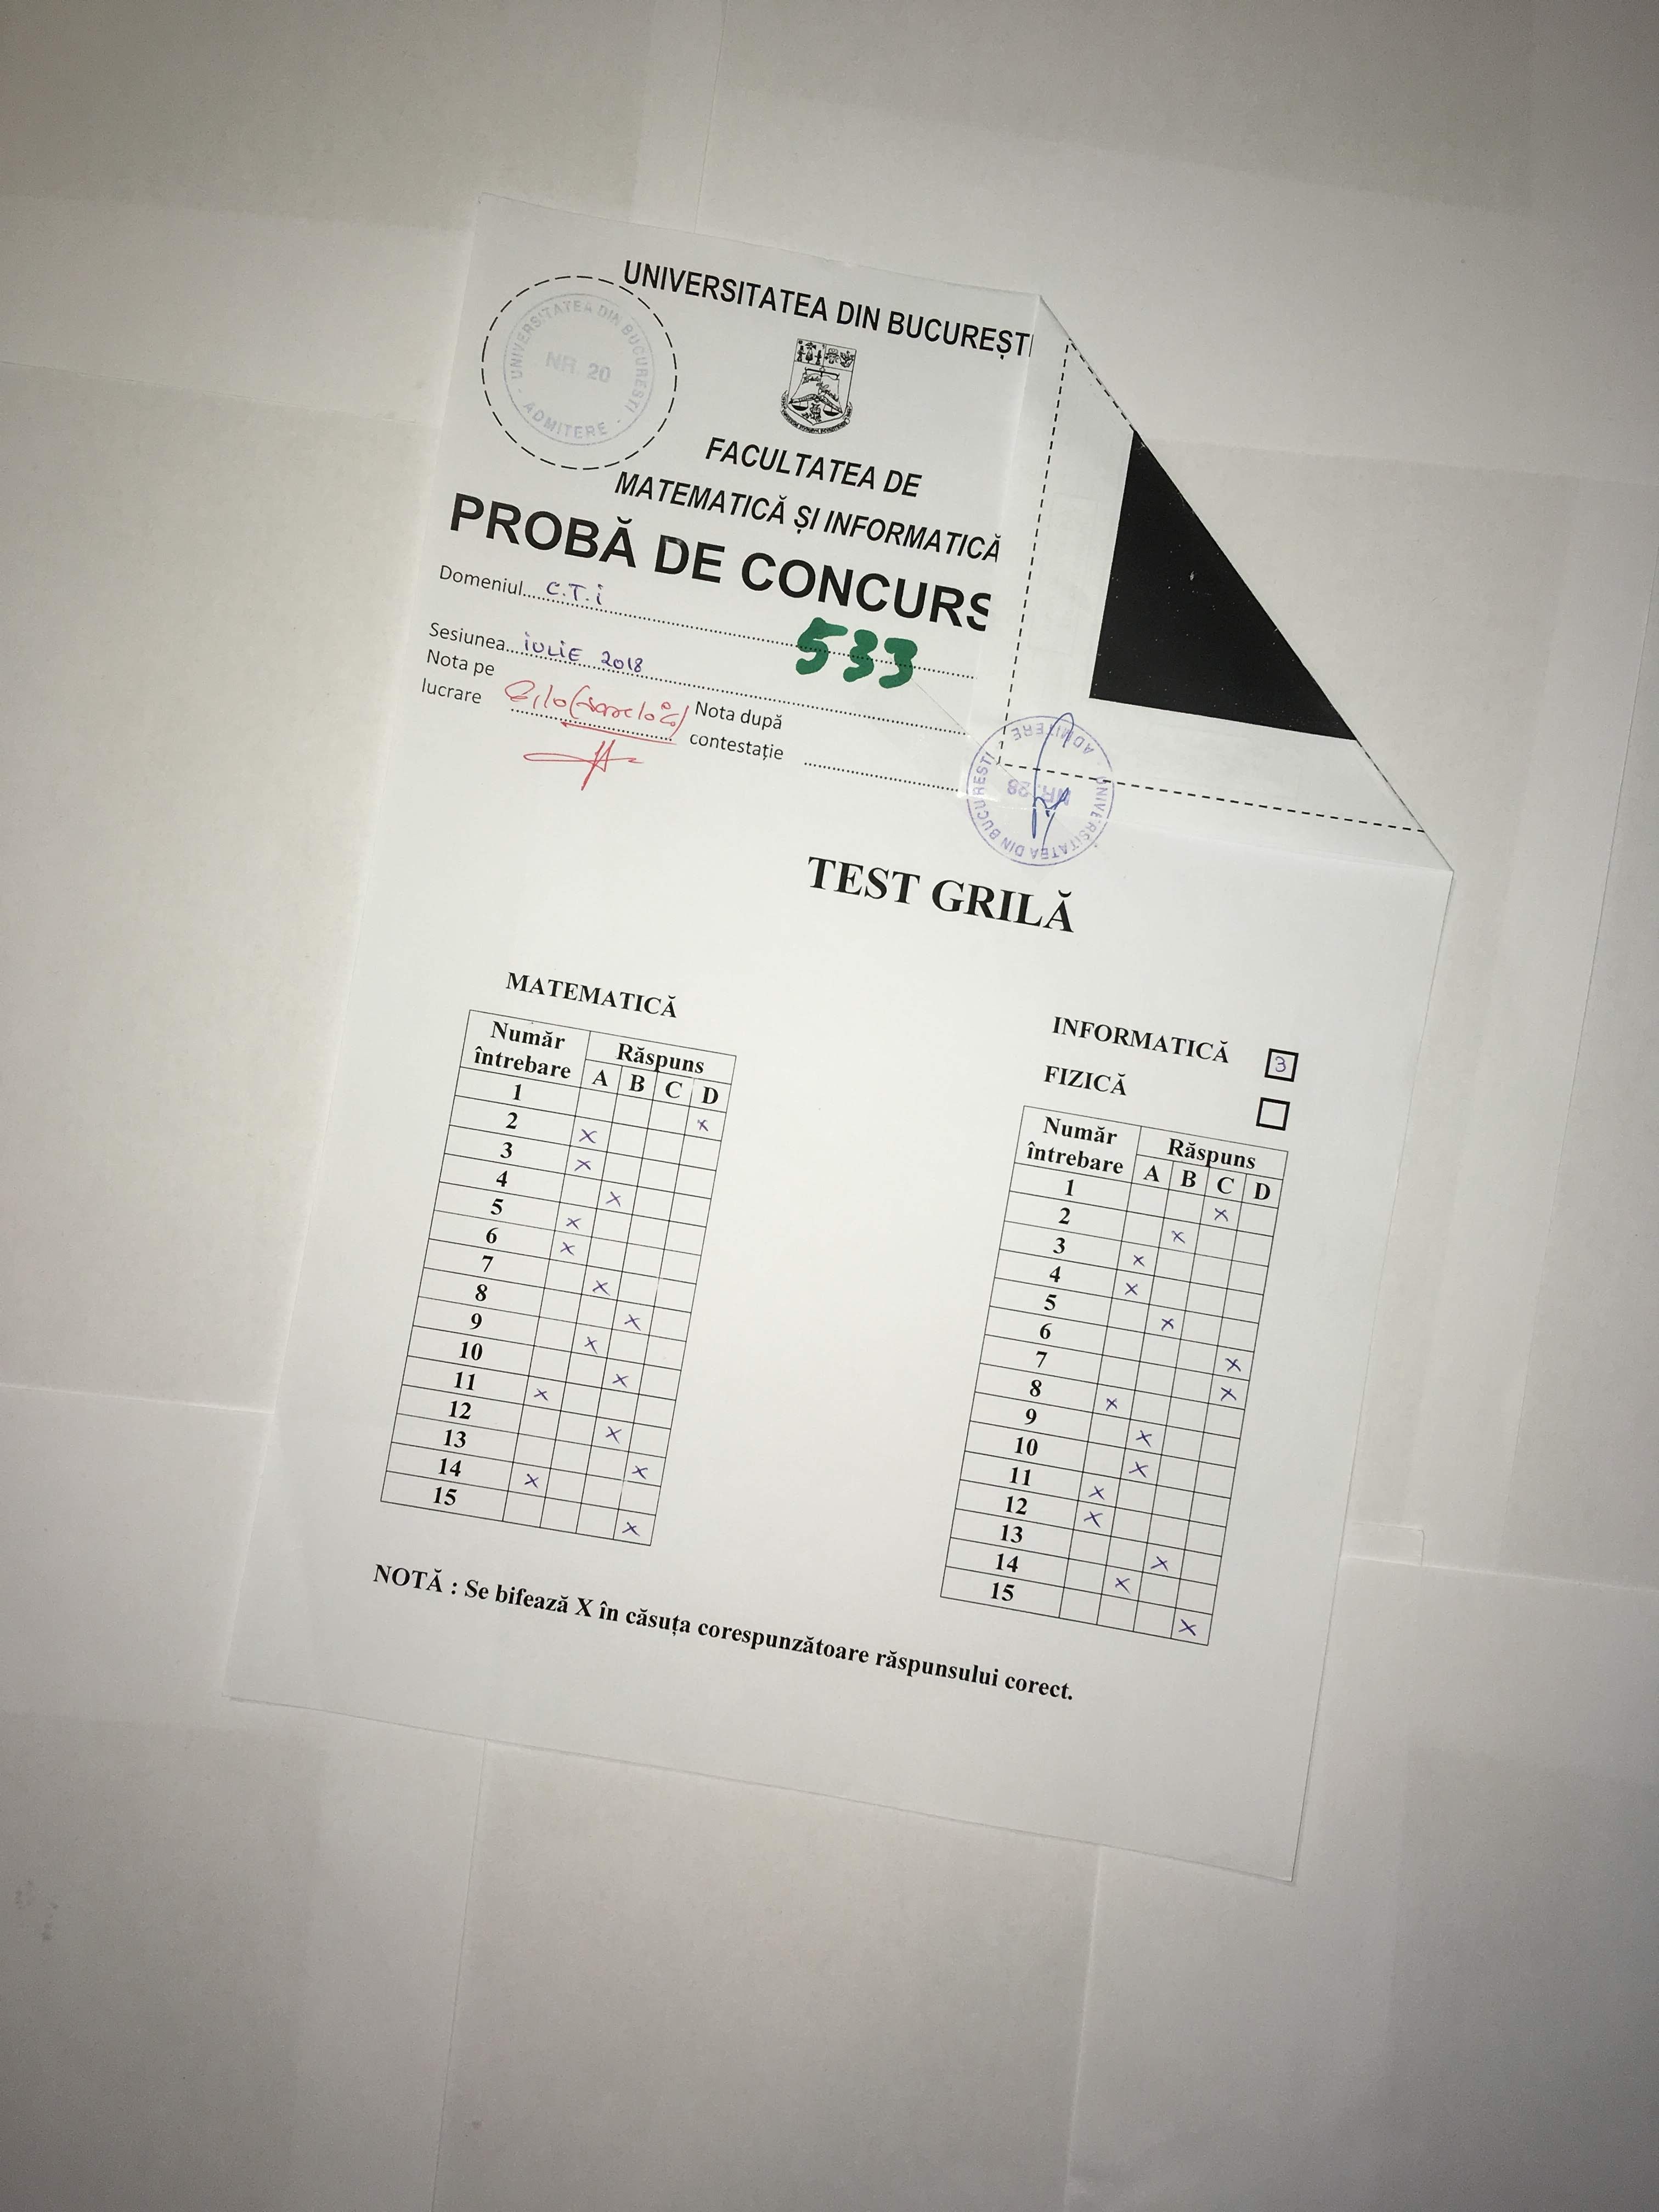 UNIVERSITATEA DIN BUCUREȘTI
UNIVERSITATEA DIN BUCUREȘTI
NR. 20
ADMITERE
FACULTATEA DE
MATEMATICĂ ȘI INFORMATICĂ
PROBĂ DE CONCURS
Domeniul....C.T.i
533
Sesiunea...iULiE 2018
Nota pe
lucrare
Nota după
contestație
UNIVERSITATEA DIN BUCUREȘTI
NR. 28
ADMITERE
TEST GRILĂ
MATEMATICĂ
Număr întrebare Răspuns
A B C D
1 x
2 x
3 x
4 x
5 x
6 x
7 x
8 x
9 x
10 x
11 x
12 x
13 x
14 x
15 x
INFORMATICĂ 3
FIZICĂ
Număr întrebare Răspuns
A B C D
1 x
2 x
3 x
4 x
5 x
6 x
7 x
8 x
9 x
10 x
11 x
12 x
13 x
14 x
15 x
NOTĂ : Se bifează X în căsuța corespunzătoare răspunsului corect.